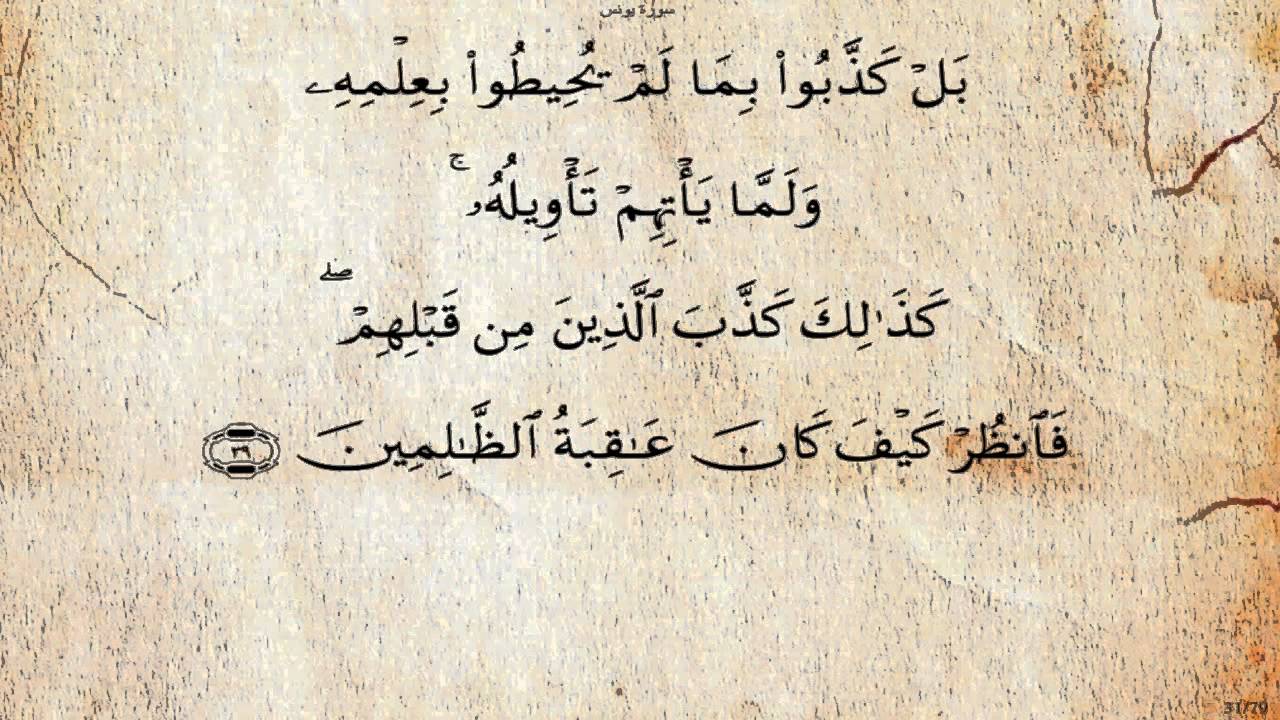 سورة يونس
بَلْ كَذَّبُوا۟ بِمَا لَمْ يُحِيطُوا۟ بِعِلْمِهِۦ
وَلَمَّا يَأْتِهِمْ تَأْوِيلُهُۥ ۚ
كَذَٰلِكَ كَذَّبَ ٱلَّذِينَ مِن قَبْلِهِمْ ۖ
فَٱنظُرْ كَيْفَ كَانَ عَـٰقِبَةُ ٱلظَّـٰلِمِينَ ٣٩
31/79